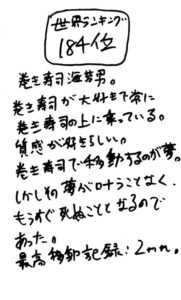 世界ランキング
184位
巻き寿司海苔男。
巻き寿司が大好きで常に
巻き寿司の上に乗っている。
質感が好きらしい。
巻き寿司で移動するのが夢。
しかしその夢が叶うことなく、
もうすぐ死ぬこととなるので
あった。
最高移動記録：2mm。